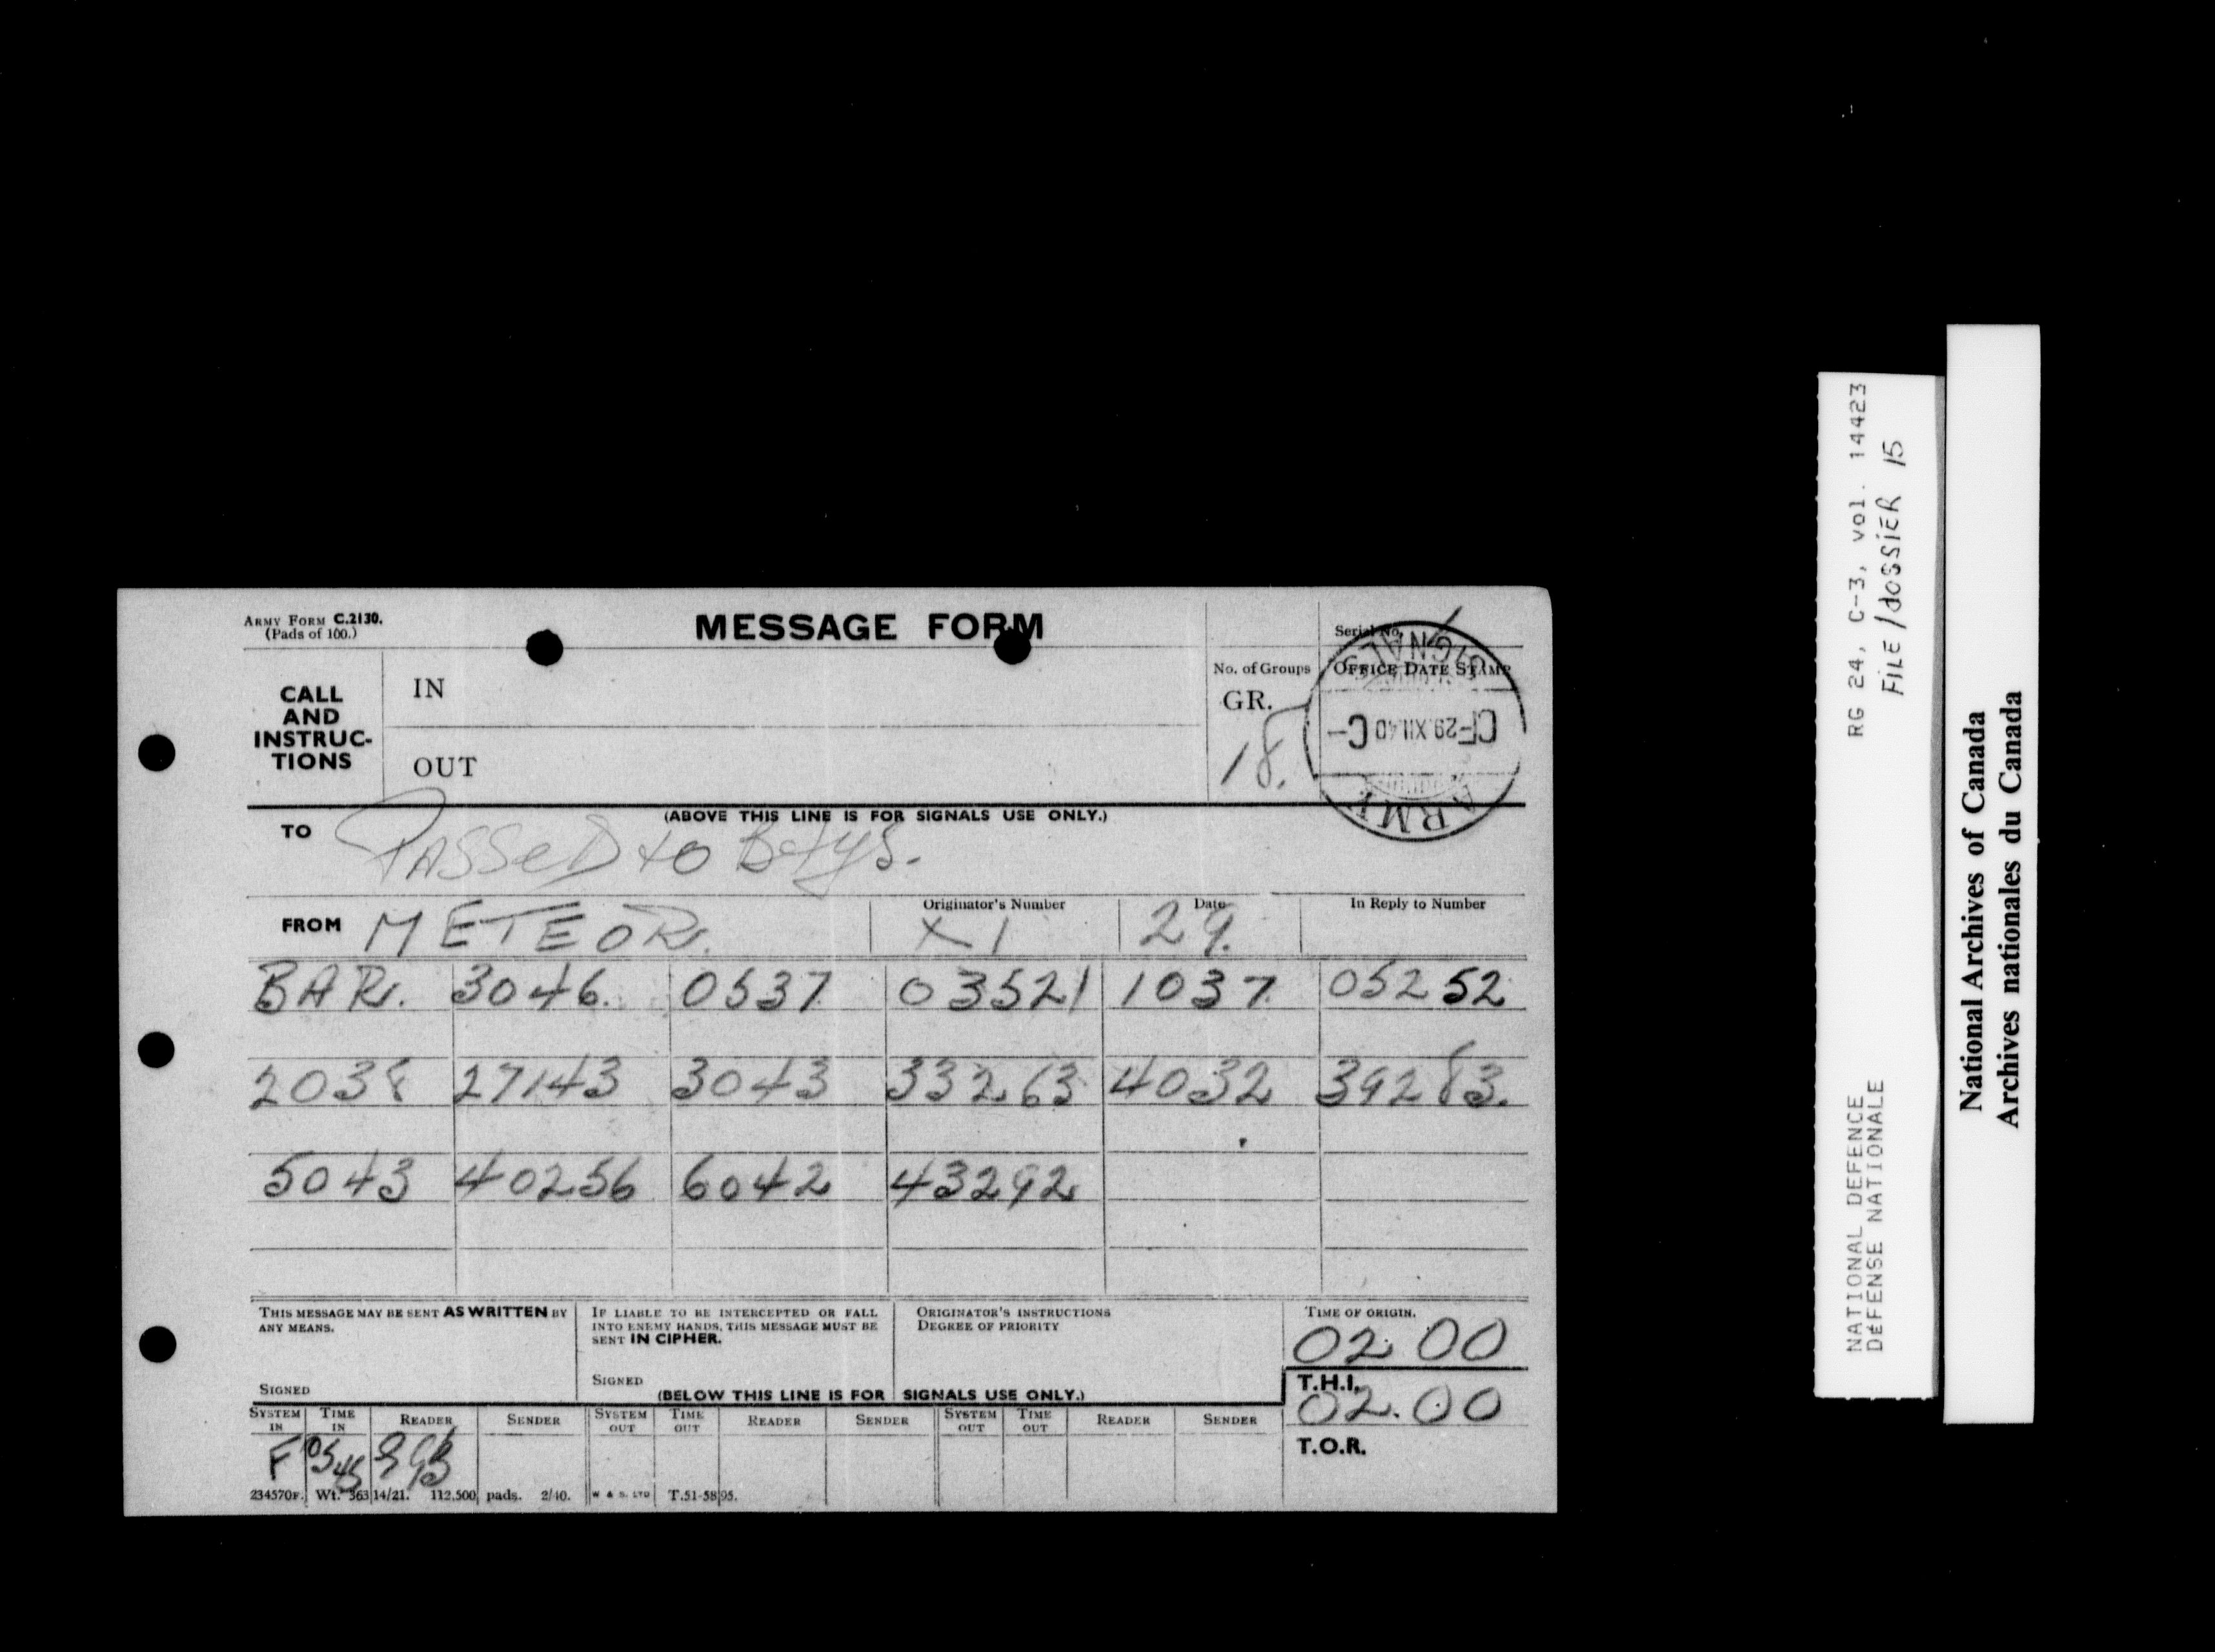 ARMY FORM C.2130.
(Pads of 100.)
MESSAGE FORM
Serial No.
CALL AND INSTRUC-TIONS
IN
OUT
No. of Groups
GR.
18.
OFFICE DATE STAMP
SIGNALS
CF-29.XII.40 C-
ARMY
(ABOVE THIS LINE IS FOR SIGNALS USE ONLY.)
TO PASSED to Btys.
FROM METEOR. Originator's Number X 1 Date 29. In Reply to Number
BAR. 3046. 0537 03521 1037 05252
2038 27143 3043 33263 4032 39283.
5043 40256 6042 43292
THIS MESSAGE MAY BE SENT AS WRITTEN BY ANY MEANS.
SIGNED
IF LIABLE TO BE INTERCEPTED OR FALL INTO ENEMY HANDS, THIS MESSAGE MUST BE SENT IN CIPHER.
SIGNED
ORIGINATOR'S INSTRUCTIONS
DEGREE OF PRIORITY
TIME OF ORIGIN.
02.00
(BELOW THIS LINE IS FOR SIGNALS USE ONLY.)
T.H.I.
02.00
T.O.R.
SYSTEM IN TIME IN READER SENDER SYSTEM OUT TIME OUT READER SENDER SYSTEM OUT TIME OUT READER SENDER
F 0345
234570F. Wt. 363 14/21. 112,500 pads. 2/40. W & S. LTD T.51-5895.
RG 24, C-3, vol. 14423
FILE/dOSSIER 15
NATIONAL DEFENCE
DEFENSE NATIONALE
National Archives of Canada
Archives nationales du Canada